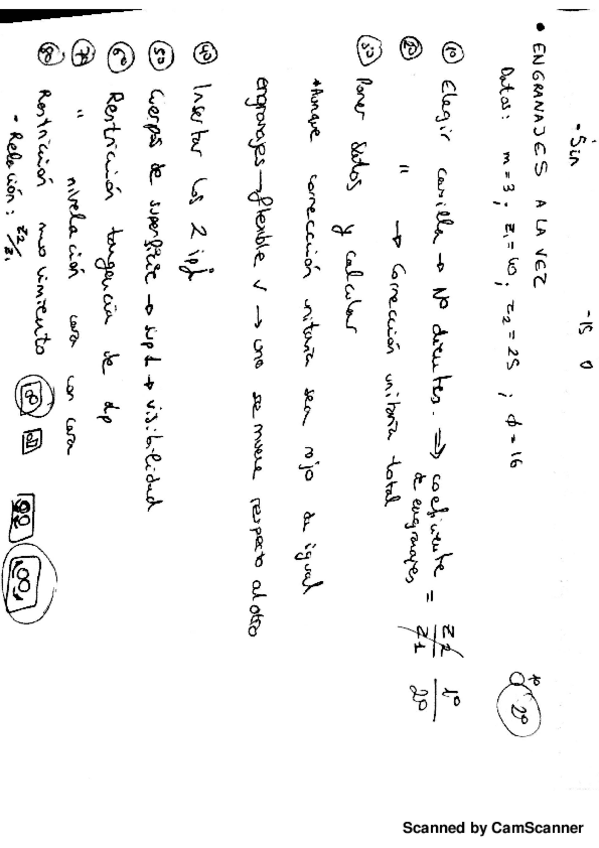 - Sin -15 0
• ENGRANAJES A LA VEZ
Datos: m=3; z1=40; z2=25; ϕ=16
1º 2º
1º Elegir casilla → Nº dientes. ⇒ coeficiente de engranajes = z2/z1 1º/2º
2º " → Corrección unitaria total
3º Poner datos y calcular
*Aunque corrección unitaria sea rojo da igual
engranajes → flexible V → uno se mueve respecto al otro
4º Insertar los 2 ipt
5º Cuerpos de superficie → → visibilidad
6º Restricción tangencia de dp
7º " nivelación cara con cara
8º Restricción movimiento
- Relación: z2/z1
Scanned by CamScanner